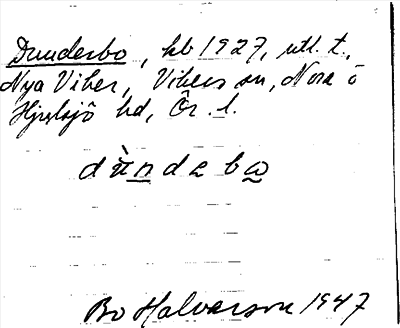 Dunderbo, kb 1927, utl. t.,
Nya Viker, Vikers sn, Nora o
Hjulsjö hd, Ör. l.
dùndəbω
Bo Halvarson 1947